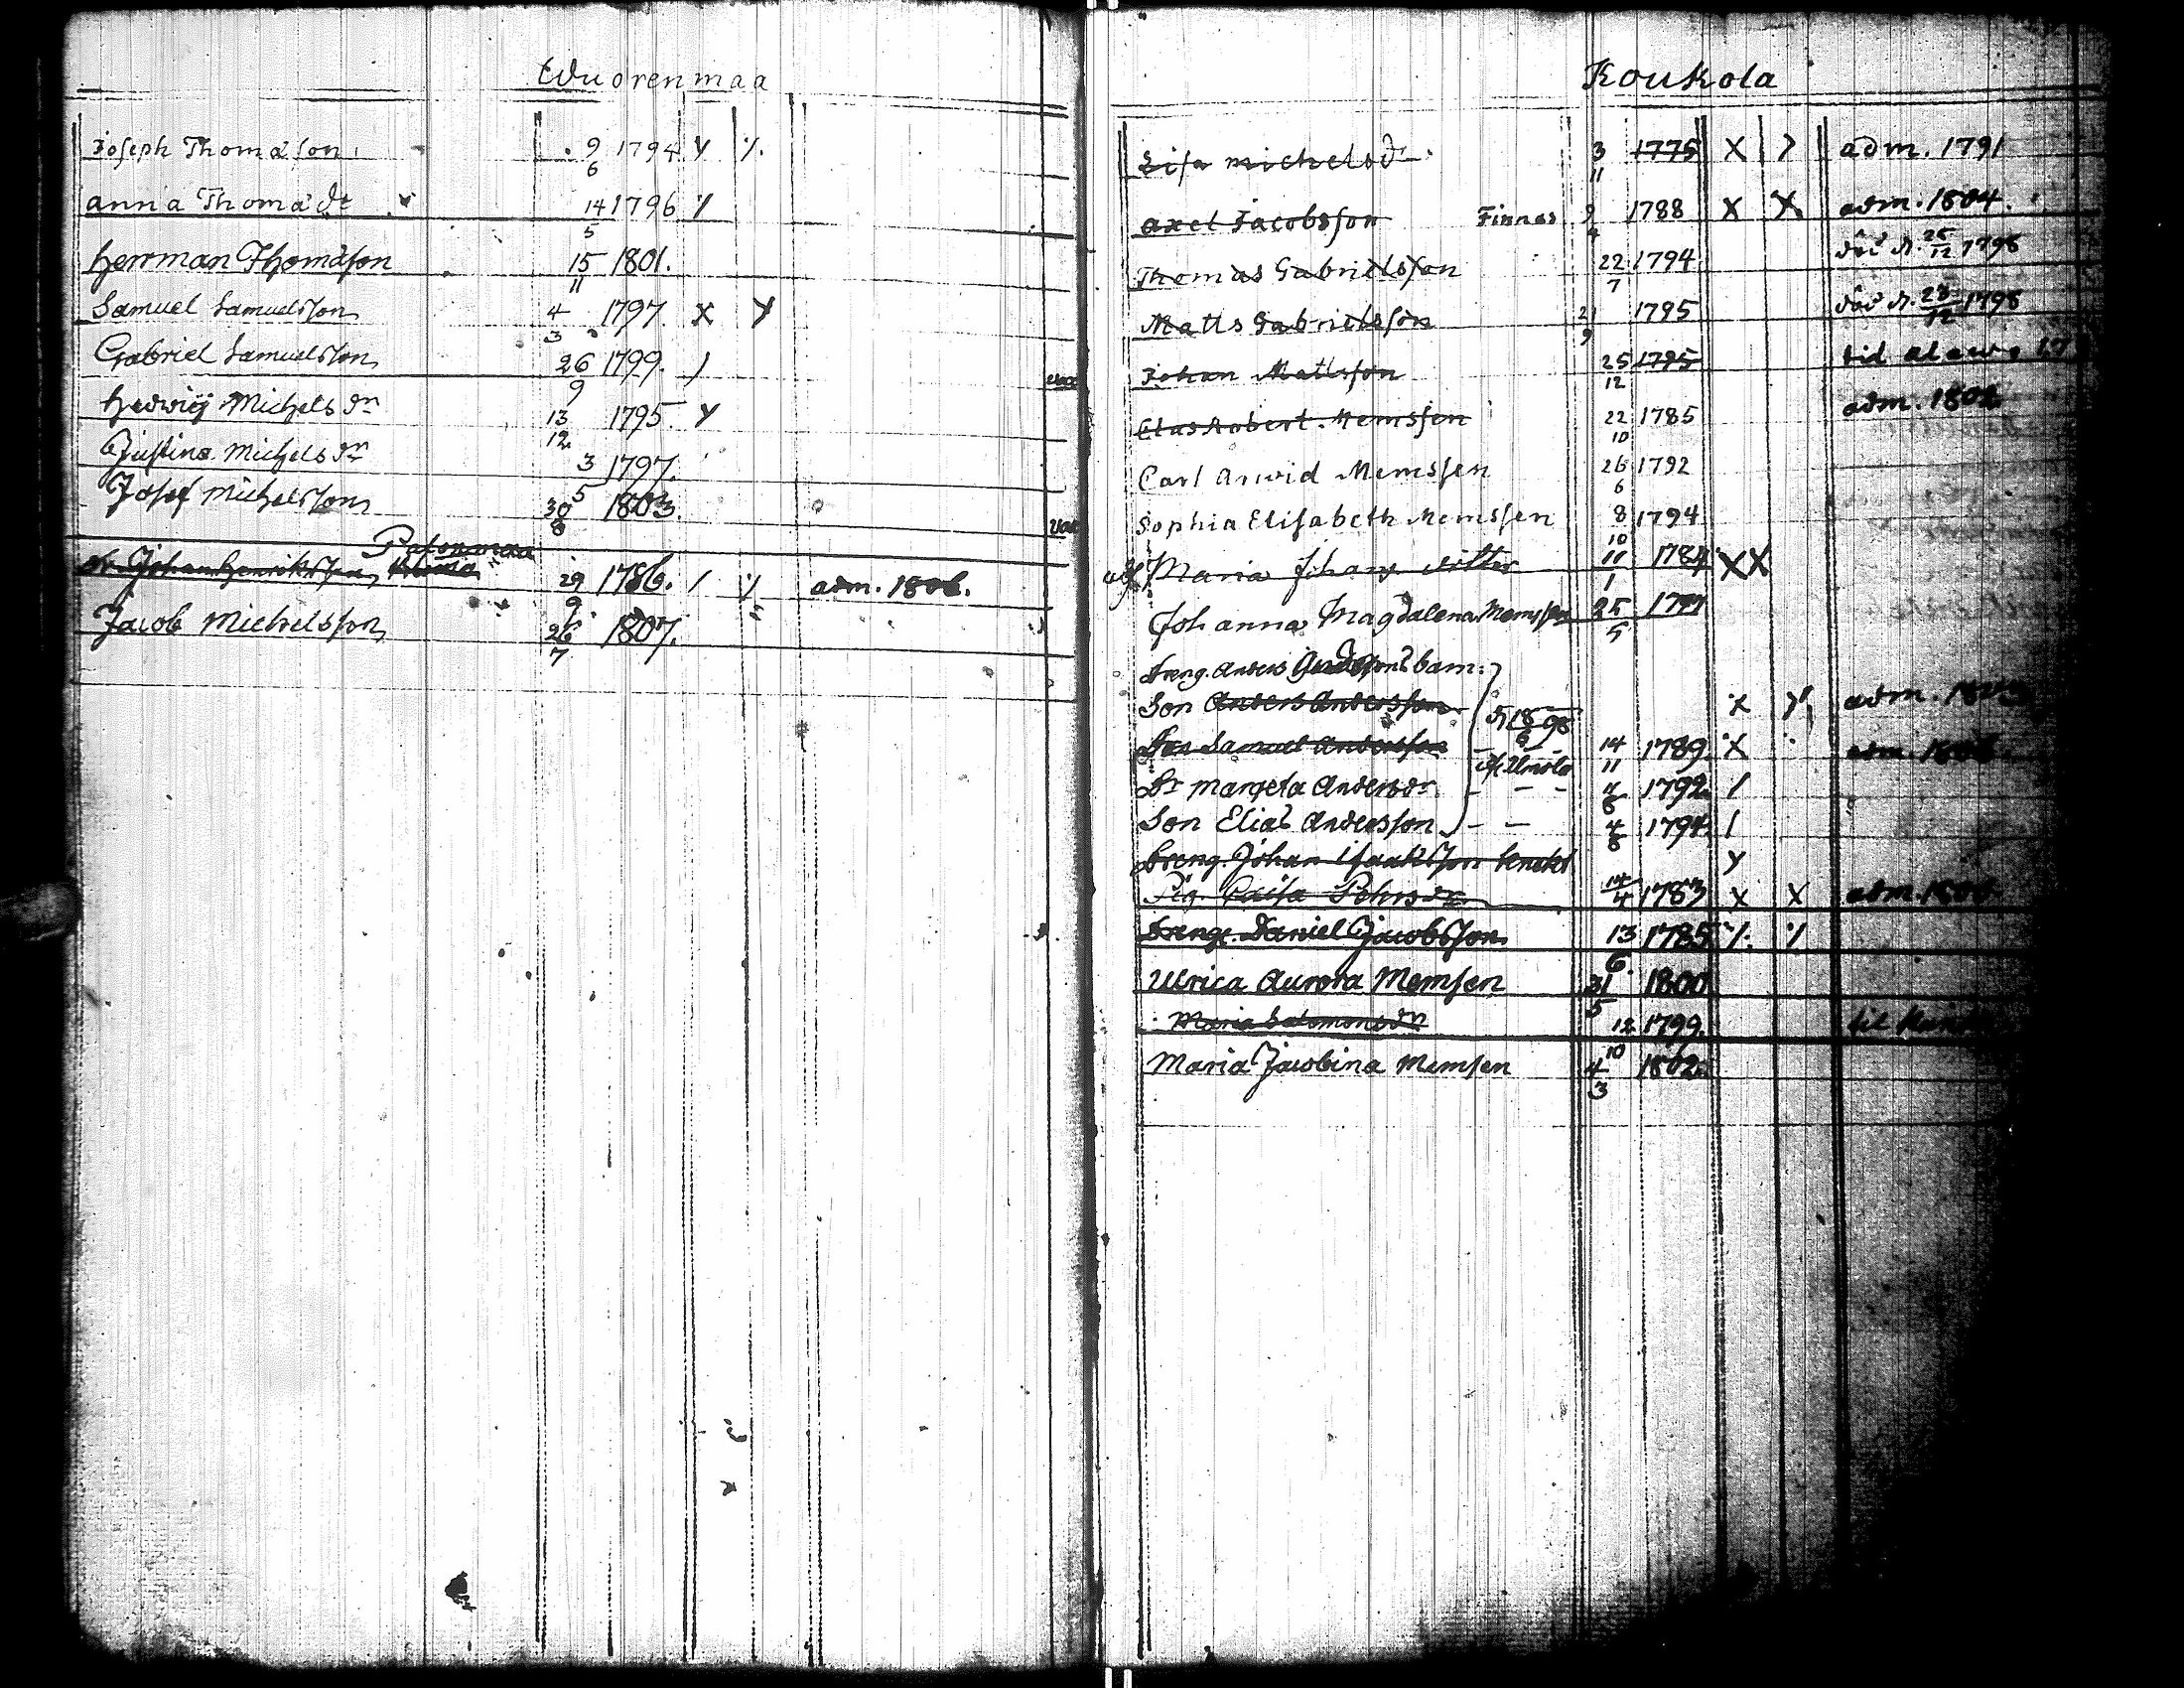 Wuorenmaa
Joseph Thomasson 9/6 1794
Anna Thomæ dt 14/5 1796
Herrman Thomasson 15/11 1801.
Samuel Samuelsson 4/3 1797 X
Gabriel Samuelsson 26/9 1799.
Hedwig Michels dr 13/12 1795
Justina Michels dr 3/5 1797.
Josef Michelsson 30/8 1803.
Johan Henriksson 29/9 1786. adm. 1806.
Jacob Michelsson 26/7 1807.
Koukola
Lisa Michelsdr 3/11 1775 X adm. 1791
Axel Jacobsson Finnas 9/4 1788 X X adm. 1804.
Thomas Gabrielsson 22/7 1794 död d. 26/12 1798
Matts Gabrielsson 21/9 1795 död d. 28/12 1798
Johan Mattsson 25/12 1795
Clas Robert Memssen 22/10 1785 adm. 1802
Carl Arwid Memssen 26/6 1792
Sophia Elisabeth Memssen 8/10 1794
Maria Johans dotter 11/1 1784 XX
Johanna Magdalena Memssen 25/5 1797
Dreng. Anders Anderssons barn:
Son Anders Andersson X adm.
Son Samuel Andersson 14/11 1789 X adm.
Dr Margeta Anders dr - - - 1792
Son Elias Andersson - - 4/8 1794
Dreng. Johan Isaaksson
Pig. Caisa Pehrs dr 14/4 1783 X X adm.
Dreng. Daniel Jacobsson 13/6 1785
Ulrica Aurora Memsen 31/5 1800
Maria Salomons dr 12/10 1799. til
Maria Jacobina Memsen 4/3 1802